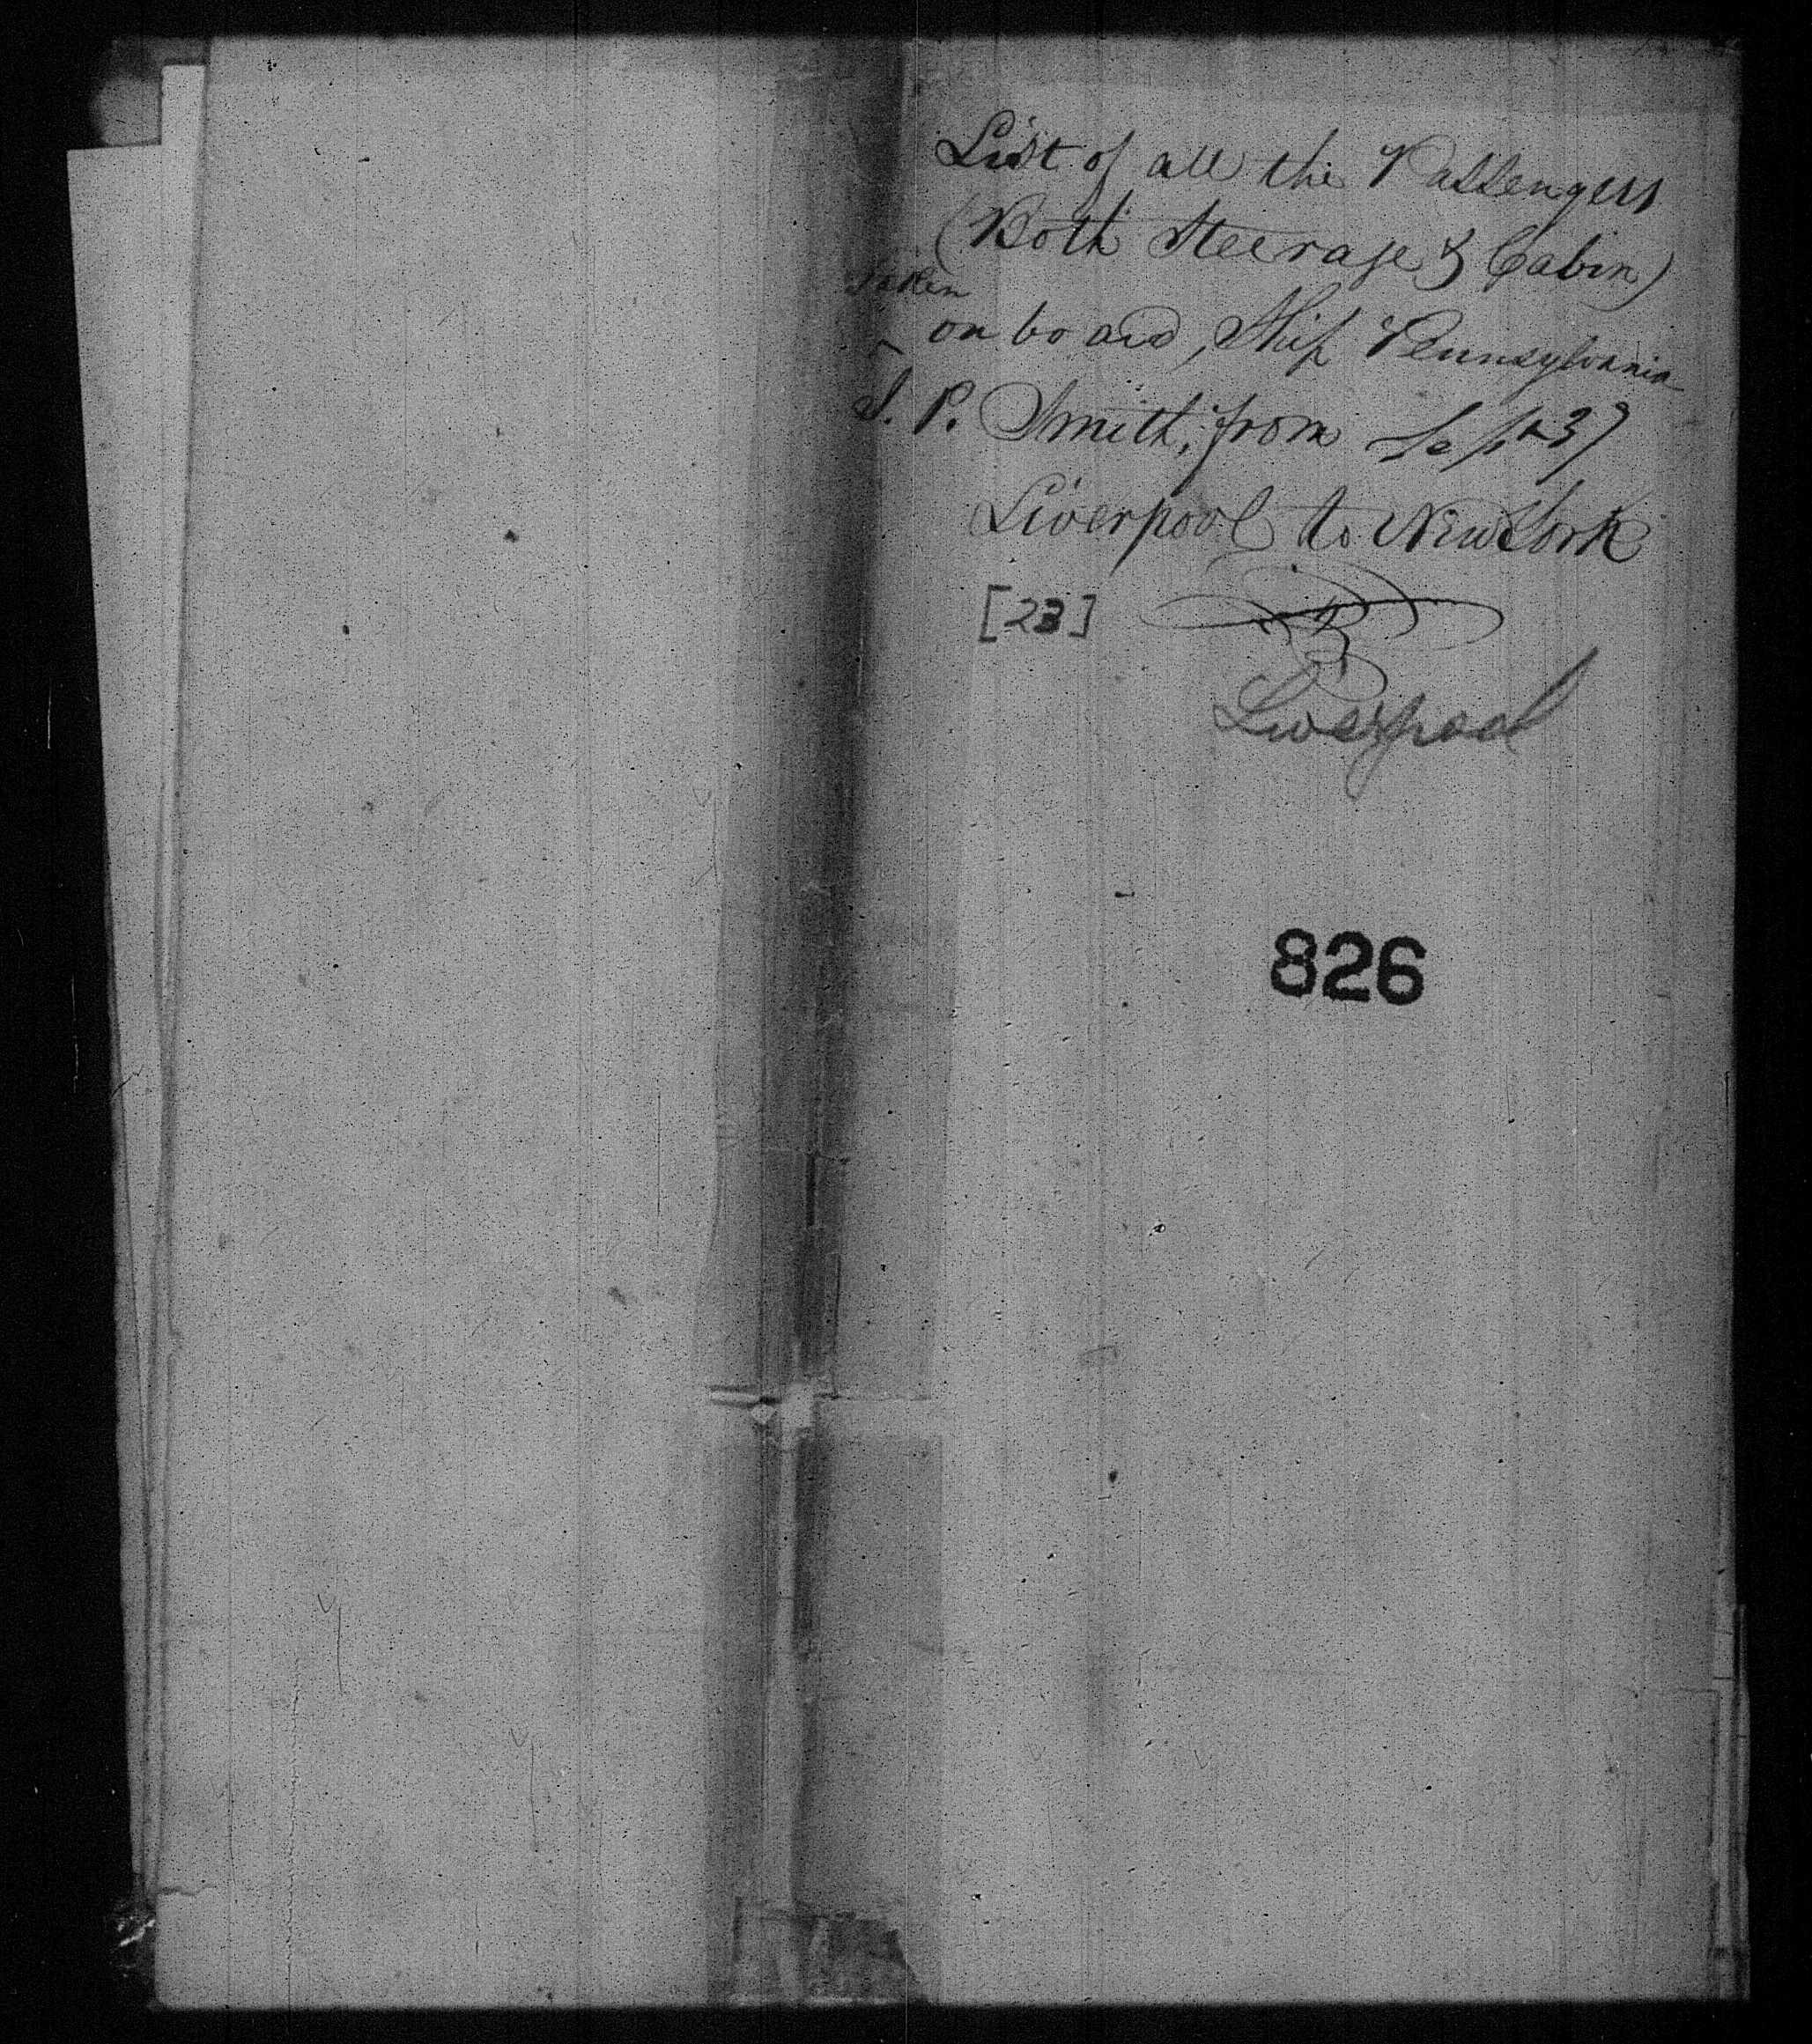 List of all the Passengers
(Both Steerage & Cabin)
Taken
^ on board, Ship Pennsylvania
J. P. Smith, from Sept 37
Liverpool to New York
[23]
Liverpool
826